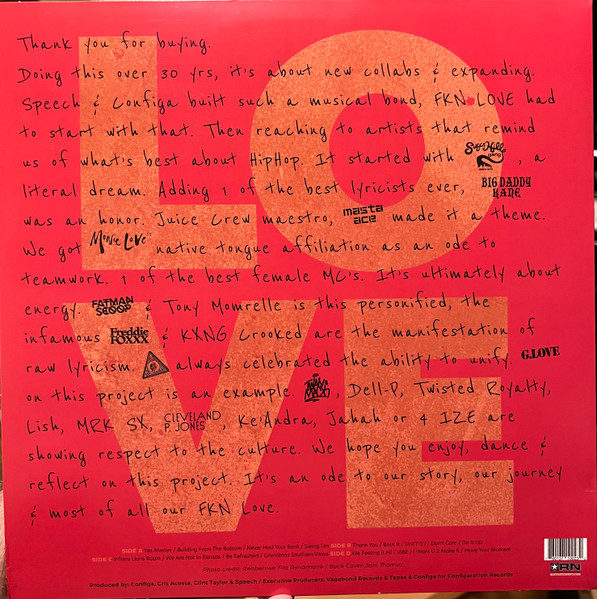 Thank you for buying.
Doing this over 30 yrs, it's about new collabs & expanding.
Speech & Configa built such a musical bond, FKN LOVE had
to start with that. Then reaching to artists that remind
us of what's best about HipHop. It started with , a
literal dream. Adding 1 of the best lyricists ever, BIG DADDY KANE
was an honor. Juice Crew maestro, masta ace made it a theme.
We got Monie Love native tongue affiliation as an ode to
teamwork. 1 of the best female MC's. It's ultimately about
energy. FATMAN SCOOP & Tony Momrelle is this personified, the
infamous Freddie FOXXX & KXNG Crooked are the manifestation of
raw lyricism. always celebrated the ability to unify. G.LOVE
on this project is an example. , Dell-P, Twisted Royalty,
Lish, MRK SX, CLEVELAND P. JONES, Ke'Andra, Jahah or 4 IZE are
showing respect to the culture. We hope you enjoy, dance &
reflect on this project. It's an ode to our story, our journey
& most of all our FKN Love.
LOVE
SIDE A Yes Always / Building From The Bottom / Never Had Your Back / Swing Urs SIDE B Thank You / Bout It / Uni(TY) / I Don't Care / Be It Up
SIDE C Where Lions Roam / We Are Not In Kansas / Be Refreshed / Grandmas Southern Ways SIDE D We Feeling It All / VIBE / I Want U 2 Make It / Have Your Moment
Photo credit: Rayon Benamone / Back Cover: Jani Thomas
Produced by: Configa, Cris Acosta, Clint Taylor & Speech / Executive Producers, Vagabond Records & Tapes & Configa for Configaration Records
RN